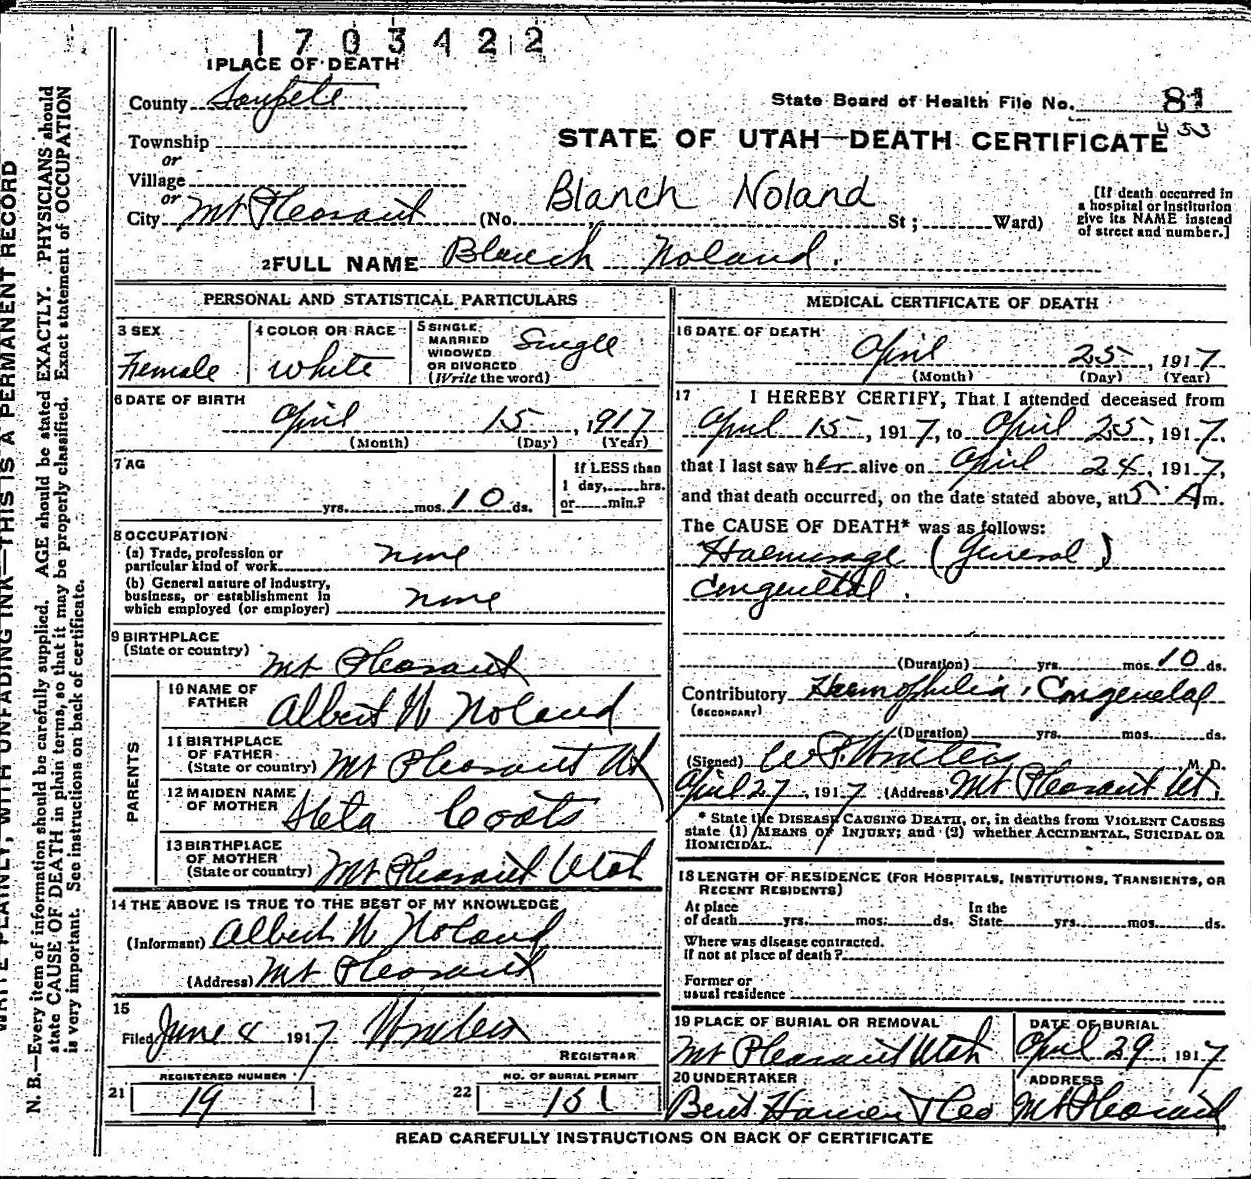 1703422
1 PLACE OF DEATH
County Sanpete
State Board of Health File No. 81
453
Township
or
Village
or
City Mt Pleasant
STATE OF UTAH—DEATH CERTIFICATE
Blanch Noland
(No. St; Ward)
[If death occurred in
a hospital or institution
give its NAME instead
of street and number.]
2 FULL NAME Blanch Noland.
PERSONAL AND STATISTICAL PARTICULARS
3 SEX
Female
4 COLOR OR RACE
White
5 SINGLE
MARRIED
WIDOWED
OR DIVORCED
(Write the word)
Single
6 DATE OF BIRTH
April 15, 1917
(Month) (Day) (Year)
7 AG
yrs. mos. 10 ds.
If LESS than
1 day, hrs.
or min.?
8 OCCUPATION
(a) Trade, profession or
particular kind of work none
(b) General nature of industry,
business, or establishment in
which employed (or employer) none
9 BIRTHPLACE
(State or country) Mt Pleasant
PARENTS
10 NAME OF
FATHER Albert N Noland
11 BIRTHPLACE
OF FATHER
(State or country) Mt Pleasant Ut
12 MAIDEN NAME
OF MOTHER Coats
13 BIRTHPLACE
OF MOTHER
(State or country) Mt Pleasant Utah
14 THE ABOVE IS TRUE TO THE BEST OF MY KNOWLEDGE
(Informant) Albert N Noland
(Address) Mt Pleasant
15
Filed June 4 1917
REGISTRAR
REGISTERED NUMBER
21 19
NO. OF BURIAL PERMIT
22 151
MEDICAL CERTIFICATE OF DEATH
16 DATE OF DEATH
April 25, 1917
(Month) (Day) (Year)
17 I HEREBY CERTIFY, That I attended deceased from
April 15, 1917, to April 25, 1917.
that I last saw her alive on April 24, 1917,
and that death occurred, on the date stated above, at 5 A m.
The CAUSE OF DEATH* was as follows:
Haemorage (General)
Congenital.
(Duration) yrs. mos. 10 ds.
Contributory Haemophilia, Congenetal
(SECONDARY)
(Duration) yrs. mos. ds.
(Signed) M. D.
April 27, 1917 (Address) Mt Pleasant Ut.
* State the DISEASE CAUSING DEATH, or, in deaths from VIOLENT CAUSES
state (1) MEANS OF INJURY; and (2) whether ACCIDENTAL, SUICIDAL OR
HOMICIDAL.
18 LENGTH OF RESIDENCE (FOR HOSPITALS, INSTITUTIONS, TRANSIENTS, OR
RECENT RESIDENTS)
At place
of death yrs. mos. ds.
In the
State yrs. mos. ds.
Where was disease contracted.
If not at place of death?
Former or
usual residence
19 PLACE OF BURIAL OR REMOVAL
Mt Pleasant Utah
DATE OF BURIAL
April 29, 1917
20 UNDERTAKER
Bent Hansen
ADDRESS
Mt Pleasant
READ CAREFULLY INSTRUCTIONS ON BACK OF CERTIFICATE
WRITE PLAINLY, WITH UNFADING INK—THIS IS A PERMANENT RECORD
N. B.—Every item of information should be carefully supplied. AGE should be stated EXACTLY. PHYSICIANS should
state CAUSE OF DEATH in plain terms, so that it may be properly classified. Exact statement of OCCUPATION
is very important. See instructions on back of certificate.